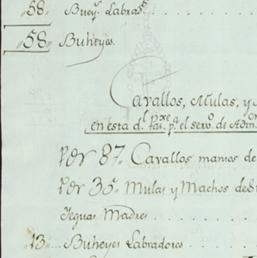 58. Buey.s Labrad
58. Buheyes.
Cavallos, Mulas, y
en esta d.
Por 87. Cavallos mansos de
Por 35. Mulas y Machos de
Yeguas Madres
13. Bueyes Labradores